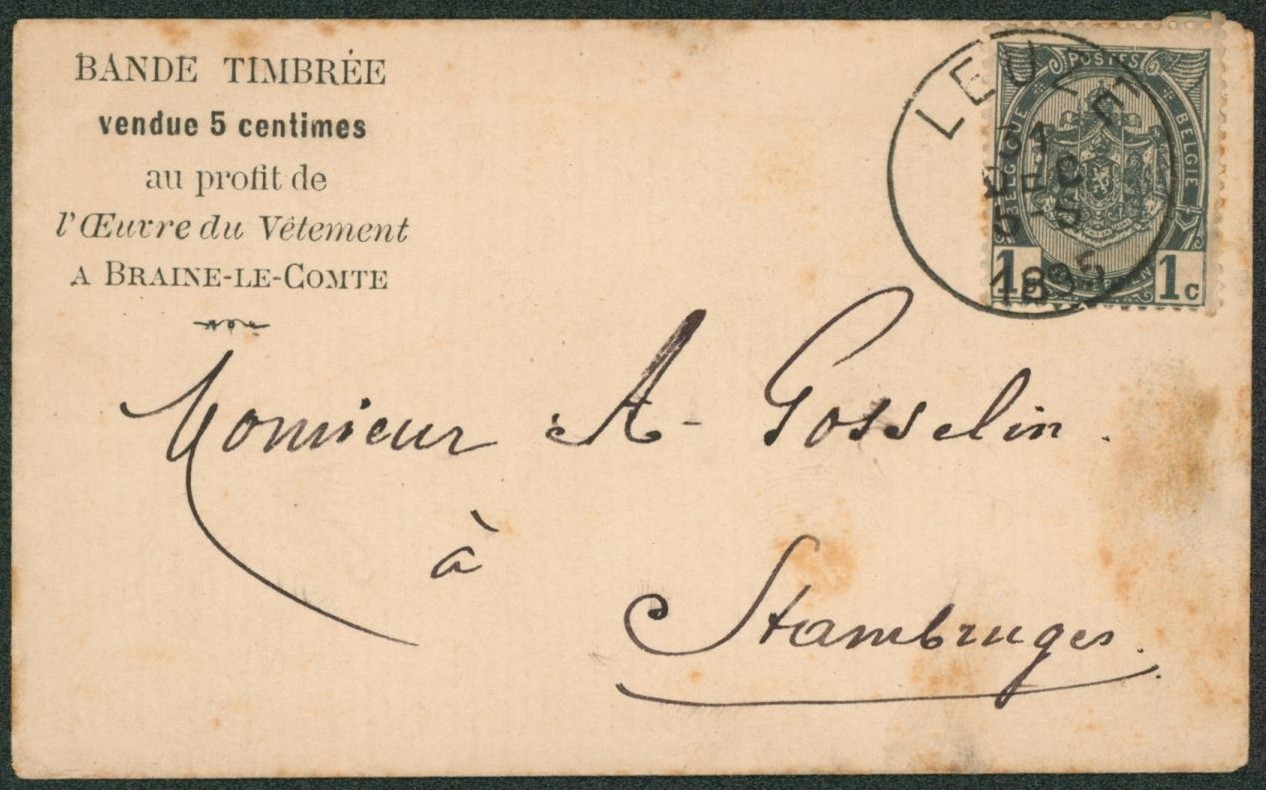 BANDE TIMBRÉE
vendue 5 centimes
au profit de
l'Œuvre du Vêtement
A BRAINE-LE-COMTE
POSTES
BELGIQUE
BELGIE
1c 1c
LEUZE
31
DEC
5-S
1895
Monsieur A. Gosselin.
à
Stambruges.